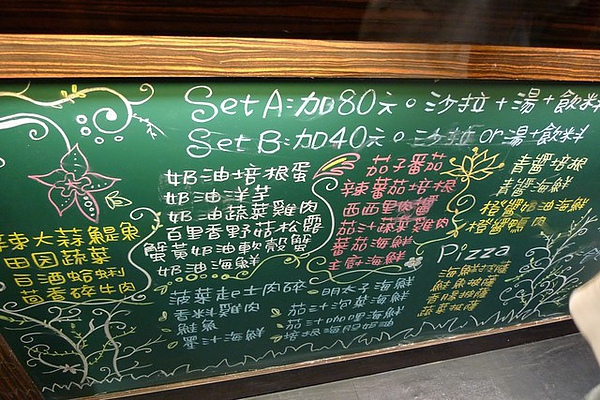 SetA:加80元。沙拉+湯+飲料
SetB:加40元。沙拉or湯+飲料
奶油培根蛋
奶油洋芋
奶油蔬菜雞肉
百里香野菇松露
蟹黃奶油軟殼蟹
奶油海鮮
茄子番茄
辣番茄培根
西西里肉醬
茄汁蔬菜雞肉
番茄海鮮
主廚海鮮
青醬培根
青醬海鮮
鴨肉
辣大蒜鯷魚
田園蔬菜
白酒蛤蜊
茴香碎牛肉
菠菜起士肉碎
香料雞肉
鮭魚
墨汁海鮮
明太子海鮮
茄汁泡菜海鮮
茄汁咖哩海鮮
Pizza